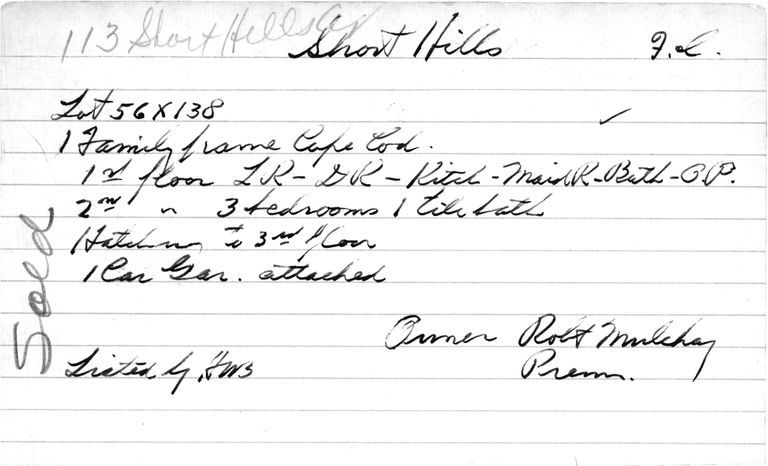 113 Short Hills Av
Short Hills
Lot 56 X 138
1 Family frame Cape Cod.
1st floor LR - DR - Kitch - Maid R - Bath - O.P.
2nd " 3 bedrooms 1 tile bath
Hatchway to 3rd floor
1 Car Gar. attached
Sold
Owner Robt Mulchay
Prem.
Listed by HWB